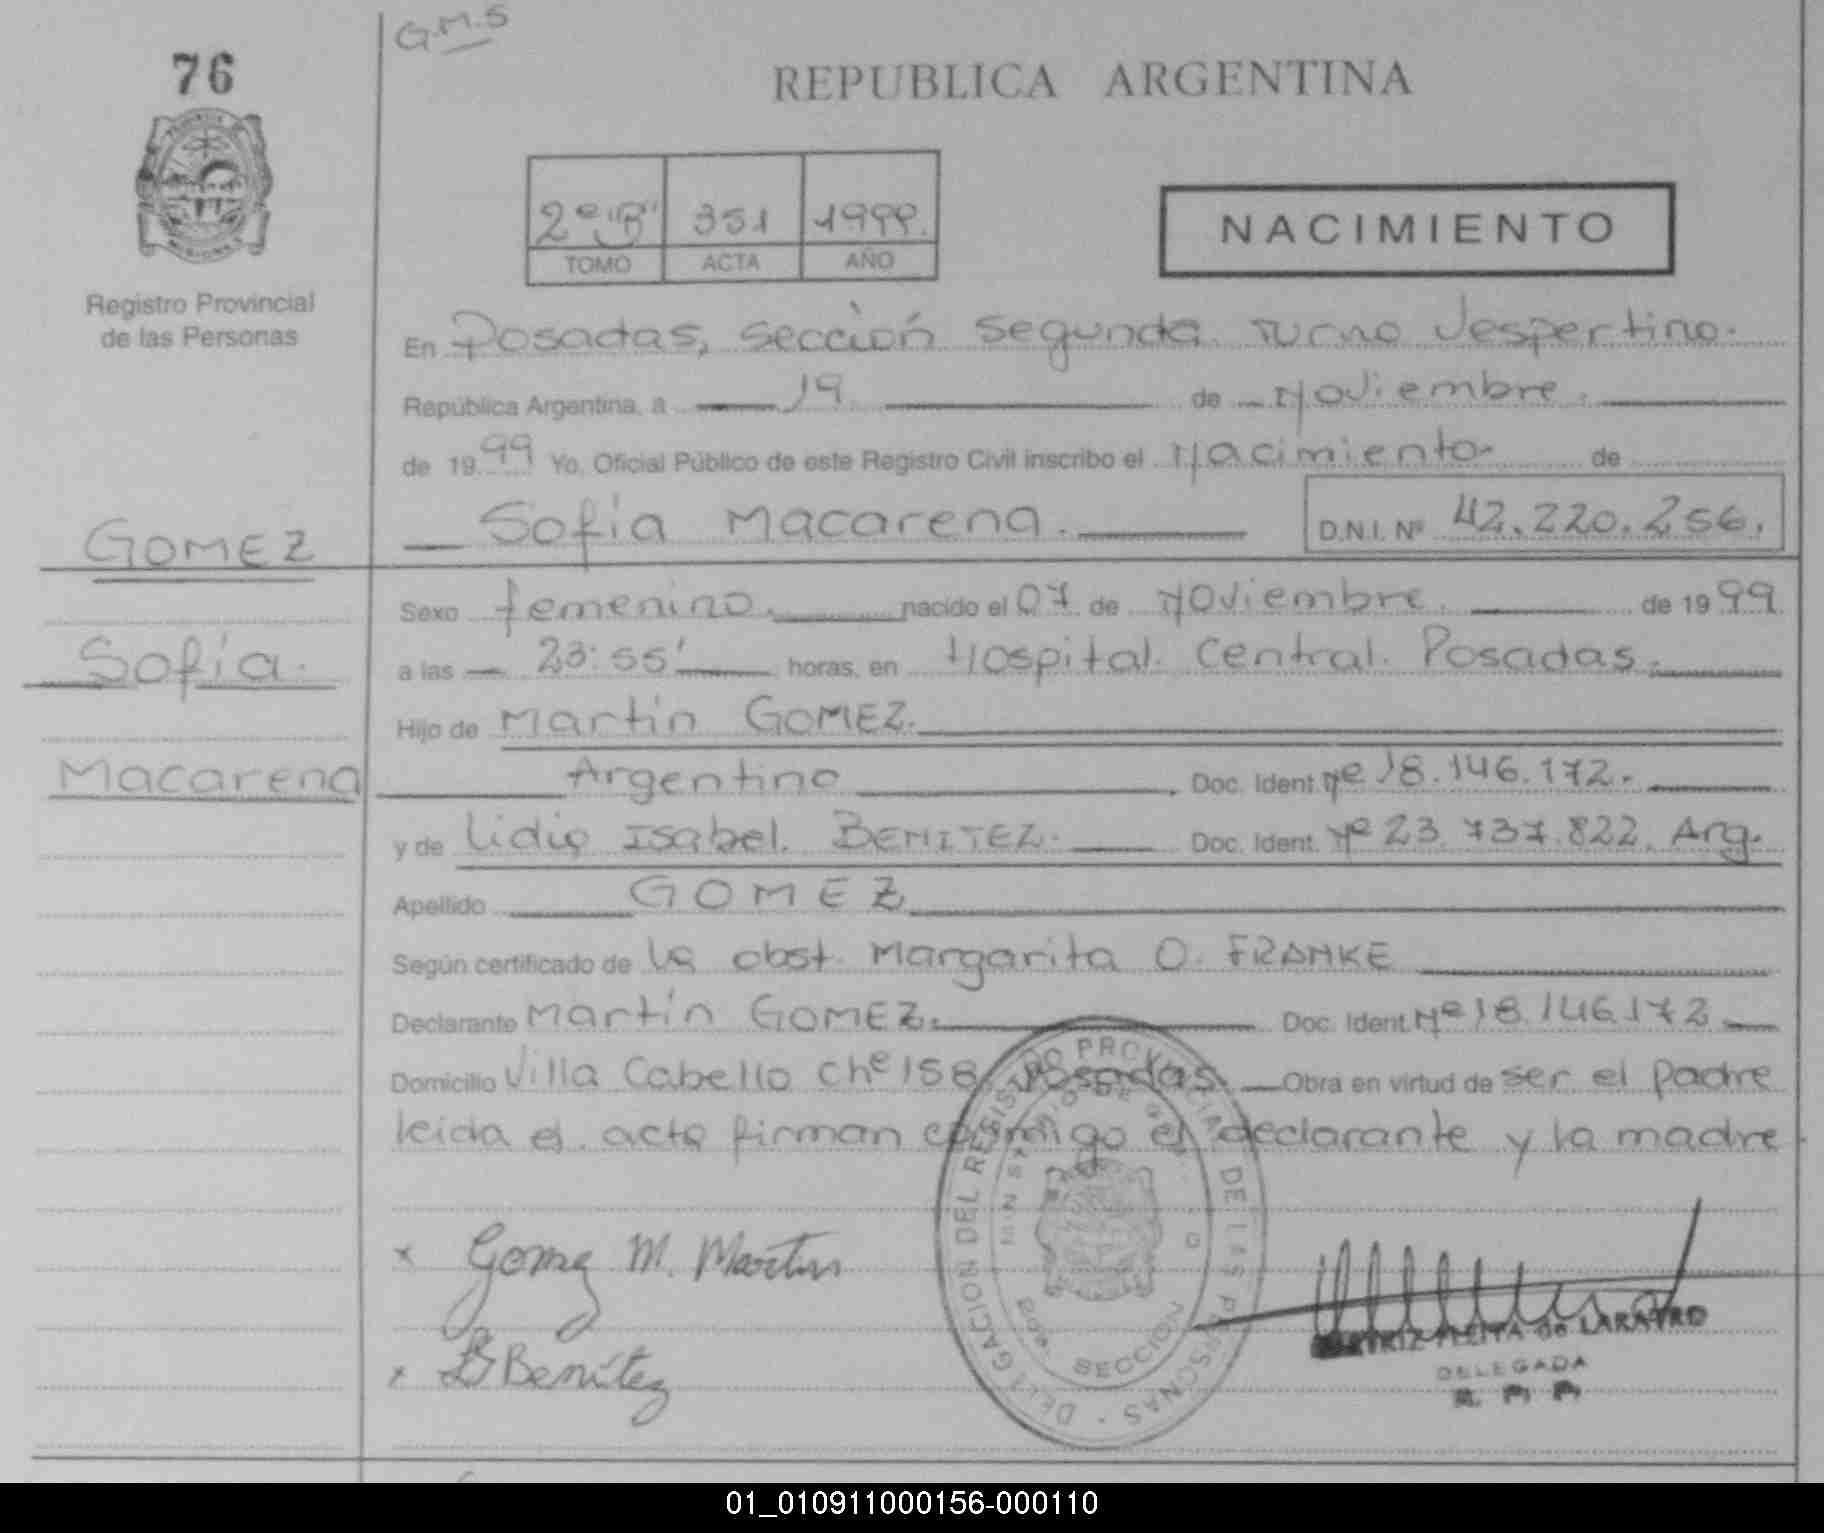 G.M.S
76
REPUBLICA ARGENTINA
2º "B" 351 1999.
TOMO ACTA AÑO
NACIMIENTO
Registro Provincial
de las Personas
En Posadas, sección segunda Turno Vespertino.
República Argentina, a 19. de Noviembre.
de 1999 Yo, Oficial Público de este Registro Civil inscribo el Nacimiento de
Sofía Macarena. D.N.I. Nº 42.220.256.
GOMEZ
Sofía.
Macarena
Sexo femenino. nacido el 07 de Noviembre. de 1999
a las 23:55' horas, en Hospital. Central. Posadas.
Hijo de Martín GOMEZ.
Argentino Doc. Ident Nº 18.146.172.
y de Lidia Isabel. BENITEZ. Doc. Ident. Nº 23.737.822. Arg.
Apellido GOMEZ
Según certificado de la obst. Margarita O. FRANKE
Declarante Martín GOMEZ. Doc. Ident. Nº 18.146.172
Domicilio Villa Cabello Chº 158. Posadas. Obra en virtud de ser el padre
leida el acta firman conmigo el declarante y la madre.
x Gomez M. Martin
x LBBenítez
DELEGACION DEL REGISTRO PROVINCIAL DE LAS PERSONAS
SECCION
de LARATRO
DELEGADA
01_010911000156-000110